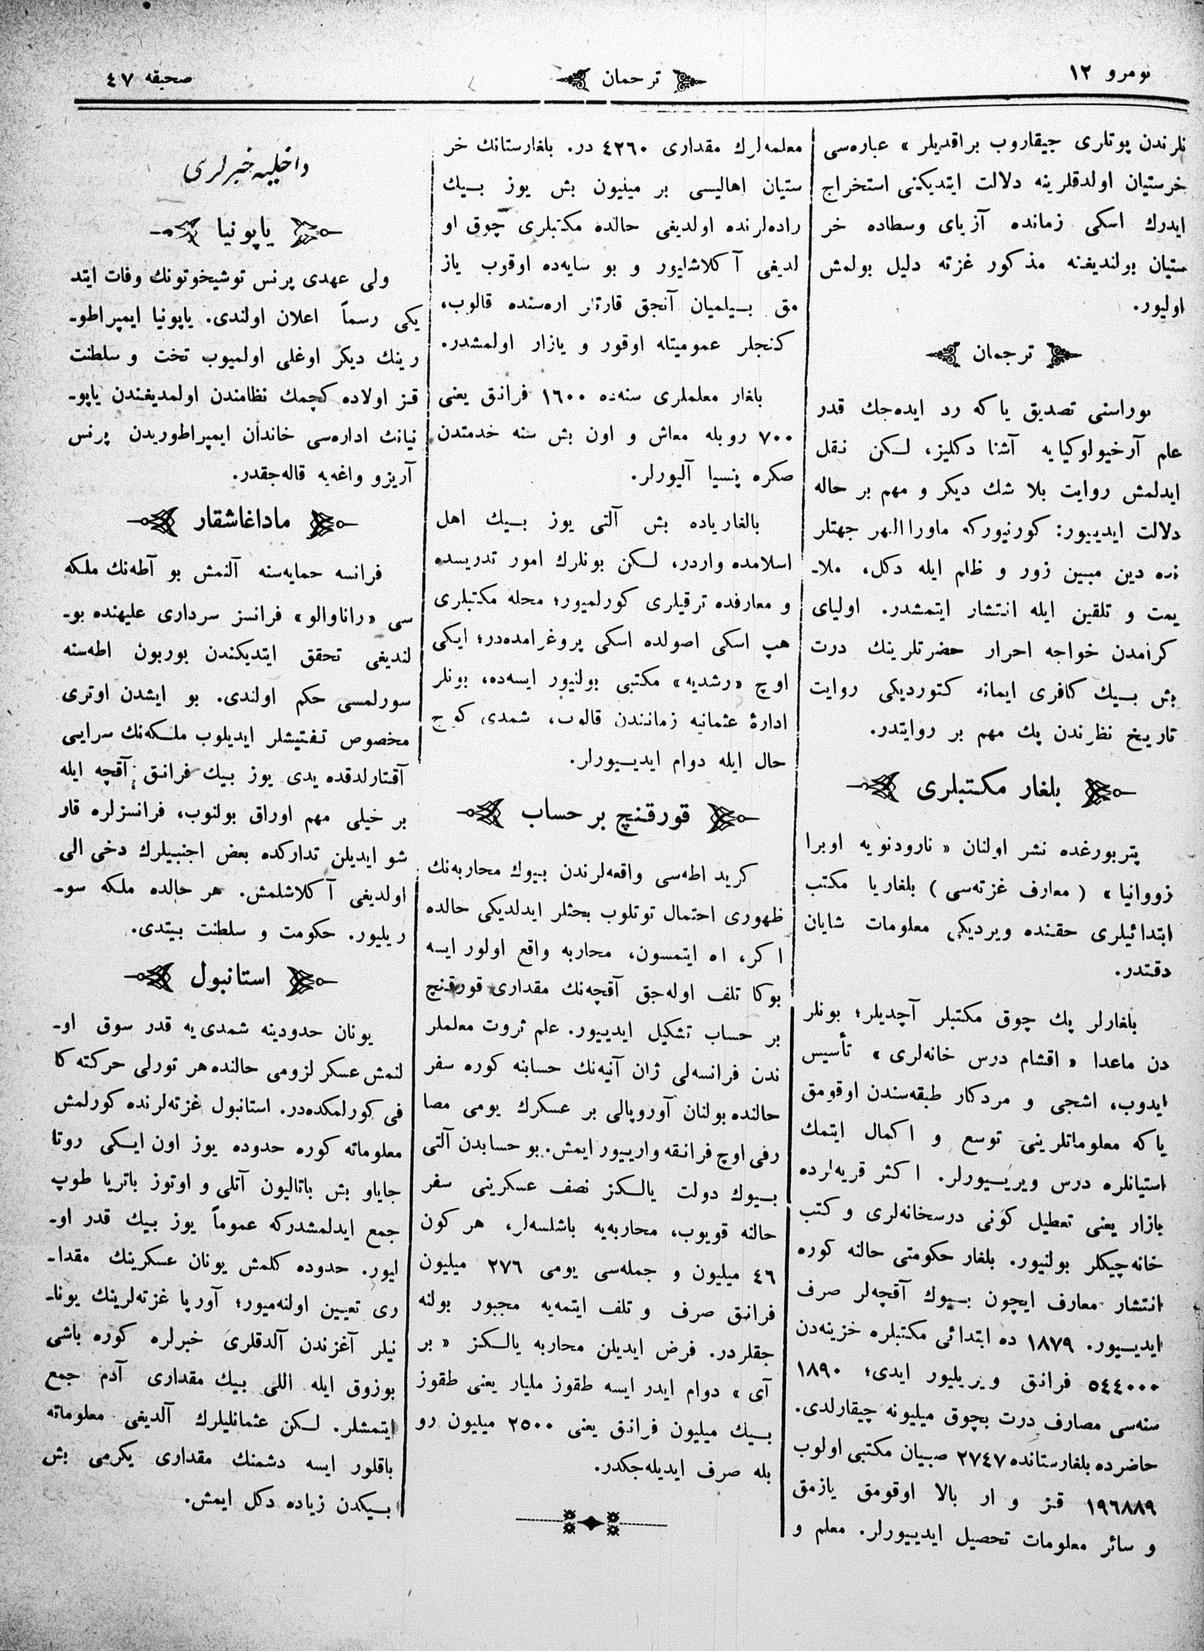 نومرو ١٢
ترجمان
صحيفه ٤٧
نلرندن پوتلرى جيقاروب براقديلر » عباره‌سى
خرستيان اولدقلرينه دلالت ايتديكنى استخراج
ايدرك اسكى زمانده آزياى وسطاده خر
ستيان بولنديغنه مذكور غزته دليل بولمش
اوليور.
ترجمان
بوراسنى تصديق ياكه رد ايده‌جك قدر
علم آرخيولوكيايه آشنا دكليز، لكن نقل
ايدلمش روايت بلا شك ديكر و مهم بر حاله
دلالت ايدييور: كورنيوركه ماورا النهر جهتلر
نده دين مبين زور و ظلم ايله دكل، ملا-
يمت و تلقين ايله انتشار ايتمشدر. اولياى
كرامدن خواجه احرار حضرتلرينك درت
بش بيك كافرى ايمانه كتورديكى روايت
تاريخ نظرندن پك مهم بر روايتدر.
بلغار مكتبلرى
پتربورغده نشر اولنان « نارودنويه اوبرا
زووانيا » ( معارف غزته‌سى ) بلغاريا مكتب
ابتدائيلرى حقنده ويرديكى معلومات شايان
دقتدر.
بلغارلر پك چوق مكتبلر آچديلر؛ بونلر
دن ماعدا « اقشام درس خانه‌لرى » تأسيس
ايدوب، اشجى و مردكار طبقه‌سندن اوقومق
ياكه معلوماتلرينى توسع و اكمال ايتمك
استيانلره درس ويرييورلر. اكثر قريه‌لرده
بازار يعنى تعطيل كونى درسخانه‌لرى و كتب
خانه‌چيكلر بولنيور. بلغار حكومتى حالنه كوره
انتشار معارف ايچون بيوك آقچه‌لر صرف
ايدييور. ١٨٧٩ ده ابتدائى مكتبلره خزينه‌دن
٥٤٤٠٠٠ فرانق ويريليور ايدى؛ ١٨٩٠
سنه‌سى مصارف درت بچوق ميليونه چيقارلدى.
حاضرده بلغارستانده ٢٧٤٧ صبيان مكتبى اولوب
١٩٦٨٨٩ قز و ار بالا اوقومق يازمق
و سائر معلومات تحصيل ايدييورلر. معلم و
معلمه‌لرك مقدارى ٤٢٦٠ در. بلغارستانك خر
ستيان اهاليسى بر ميليون بش يوز بيك
راده‌لرنده اولديغى حالده مكتبلرى چوق او
لديغى آكلاشليور و بو سايه‌ده اوقوب ياز
مق بيلميان آنجق قارتلر اره‌سنده قالوب،
كنجلر عموميتله اوقور و يازار اولمشدر.
بلغار معلملرى سنه‌ده ١٦٠٠ فرانق يعنى
٧٠٠ روبله معاش و اون بش سنه خدمتدن
صكره پنسيا آليورلر.
بالغارياده بش آلتى يوز بيك اهل
اسلامده واردر، لكن بونلرك امور تدريسده
و معارفده ترقيلرى كورلميور؛ محله مكتبلرى
هپ اسكى اصولده اسكى پروغرامده‌در؛ ايكى
اوچ « رشديه » مكتبى بولنيور ايسه‌ده، بونلر
ادارهٔ عثمانيه زمانندن قالوب، شمدى كوج
حال ايله دوام ايدييورلر.
قورقنچ بر حساب
كريد اطه‌سى واقعه‌لرندن بيوك محاربه‌نك
ظهورى احتمال توتلوب بحثلر ايدلديكى حالده
اكر، اه ايتمسون، محاربه واقع اولور ايسه
بوكا تلف اوله‌جق آقچه‌نك مقدارى قورقنچ
بر حساب تشكيل ايدييور. علم ثروت معلملر
ندن فرانسه‌لى ژان آنيه‌نك حسابنه كوره سفر
حالنده بولنان آوروپالى بر عسكرك يومى مصا
رفى اوچ فرانقه وارييور ايمش. بو حسابدن آلتى
بيوك دولت يالكز نصف عسكرينى سفر
حالنه قويوب، محاربه‌يه باشلسه‌لر، هر كون
٤٦ ميليون و جمله‌سى يومى ٢٧٦ ميليون
فرانق صرف و تلف ايتمه‌يه مجبور بولنه
جقلردر. فرض ايديلن محاربه يالكز « بر
آى » دوام ايدر ايسه طقوز مليار يعنى طقوز
بيك ميليون فرانق يعنى ٢٥٠٠ ميليون رو
بله صرف ايديله‌جكدر.
داخليه خبرلرى
ياپونيا
ولى عهدى پرنس توشيخوتونك وفات ايتد
يكى رسماً اعلان اولندى. ياپونيا ايمپراطو-
رينك ديكر اوغلى اولميوب تخت و سلطنت
قز اولاده كچمك نظامندن اولمديغندن ياپو-
نيانك اداره‌سى خاندان ايمپراطوريدن پرنس
آريزو واغه‌يه قاله‌جقدر.
ماداغاشقار
فرانسه حمايه‌سنه آلنمش بو آطه‌نك ملكه
سى « راناوالو » فرانسز سردارى عليهنده بو-
لنديغى تحقق ايتديكندن بوربون اطه‌سنه
سورلمسى حكم اولندى. بو ايشدن اوترى
مخصوص تفتيشلر ايديلوب ملكه‌نك سرايى
آقتارلدقده يدى يوز بيك فرانق آقچه ايله
بر خيلى مهم اوراق بولنوب، فرانسزلره قار
شو ايديلن تداركده بعض اجنبيلرك دخى الى
اولديغى آكلاشلمش. هر حالده ملكه سو-
ريليور. حكومت و سلطنت بيتدى.
استانبول
يونان حدودينه شمدى‌يه قدر سوق او-
لنمش عسكر لزومى حالنده هر تورلى حركته كا
فى كورلمكده‌در. استانبول غزته‌لرنده كورلمش
معلوماته كوره حدوده يوز اون ايكى روتا
جاياو بش باتاليون آتلى و اوتوز باتريا طوپ
جمع ايدلمشدركه عموماً يوز بيك قدر او-
ليور. حدوده كلمش يونان عسكرينك مقدا-
رى تعيين اولنه‌ميور؛ آوريا غزته‌لرينك يونا-
نيلر آغزندن آلدقلرى خبرلره كوره باشى
بوزوق ايله اللى بيك مقدارى آدم جمع
ايتمشلر. لكن عثمانليلرك آلديغى معلوماته
باقلور ايسه دشمنك مقدارى يكرمى بش
بيكدن زياده دكل ايمش.